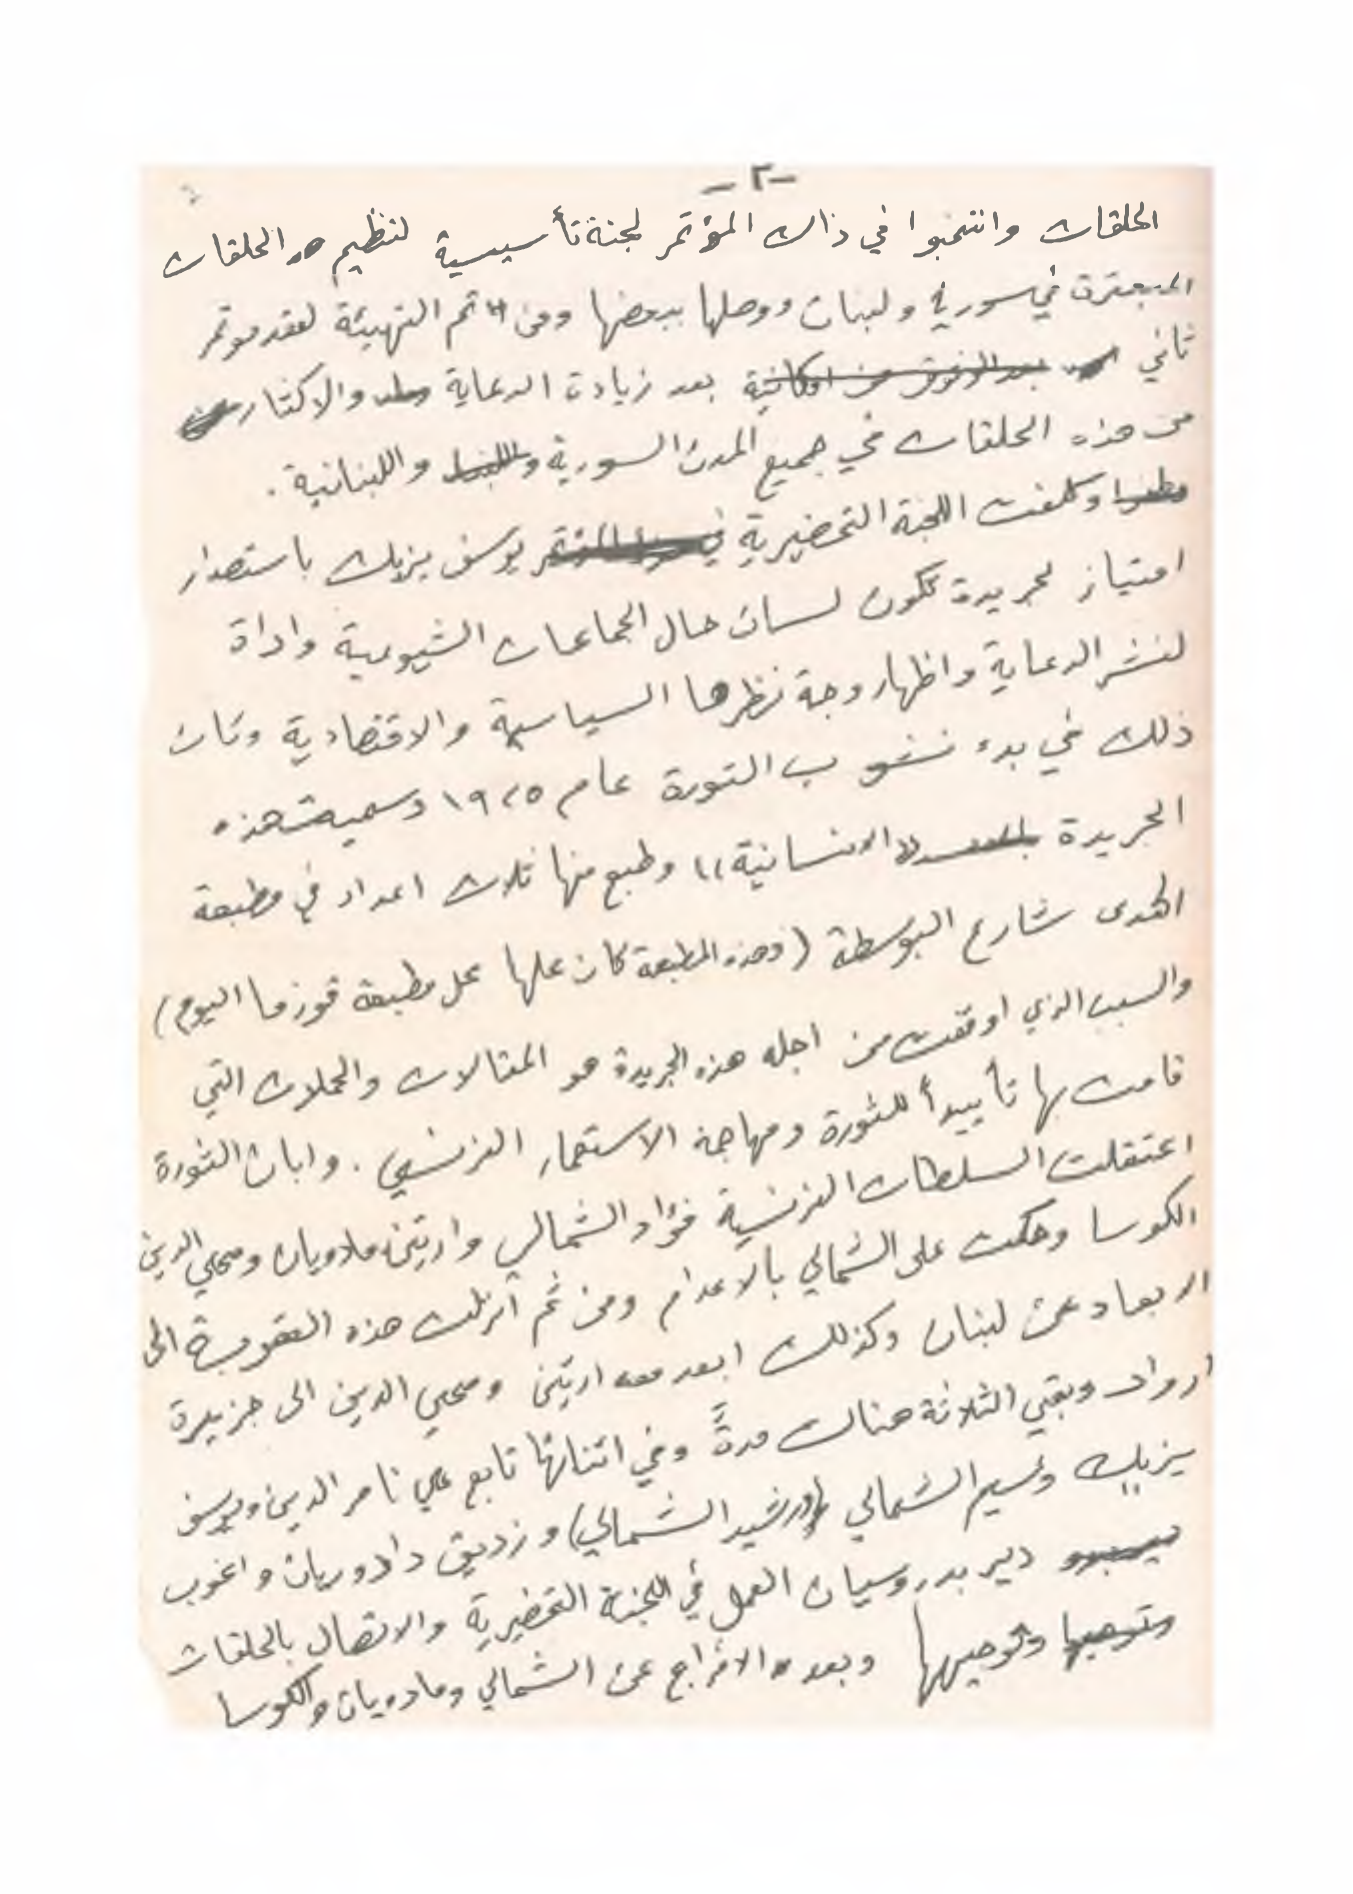 -٢-
الحلقات وانتخبوا في ذاك المؤتمر لجنة تأسيسية لتنظيم الحلقات
المبعثرة في سورية ولبنان ووصلها ببعضها ومن ثم التهيئة لعقد موتمر
ثاني بعد زيادة الدعاية والاكثار
من هذه الحلقات في جميع المدن السورية واللبنانية .
وكلفت اللجنة التحضيرية في يوسف يزبك باستصدار
امتياز لجريدة تكون لسان حال الجماعات الشيوعية واداة
لنشر الدعاية واظهار وجة نظرها السياسية والاقتصادية وكان
ذلك في بدء نشوب الثورة عام ١٩٢٥ وسميت هذه
الجريدة "الانسانية" وطبع منها ثلاث اعداد في مطبعة
الهدى شارع البوسطة (وهذه المطبعة كان محلها محل مطبعة قوزما اليوم)
والسبب الذي اوقفت من اجله هذه الجريدة هو المقالات والحملات التي
قامت بها تأييدأ للثورة ومهاجمة الاستعمار الفرنسي . وابان الثورة
اعتقلت السلطات الفرنسية فؤاد الشمالي وارتين مادويان ومحيي الدين
الكوسا وحكمت على الشمالي بالاعدام ومن ثم أنزلت هذه العقوبة الى
الابعاد عن لبنان وكذلك ابعد معه ارتين ومحيي الدين الى جزيرة
ارواد وبقي الثلاثة هناك مدةً وفي اثنائها تابع علي ناصر الدين ويوسف
يزبك وسيم الشمالي (ورشيد الشمالي) و دادوريان واغوب
دير بدروسيان العمل في اللجنة التحضيرية والاتصال بالحلقات
وتوجيهها وبعد الافراج عن الشمالي ومادويان والكوسا